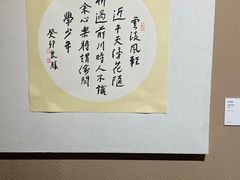 雲淡風輕
近午天傍花隨
柳過前川時人不識
余心樂將謂偷閒
學少年
癸卯